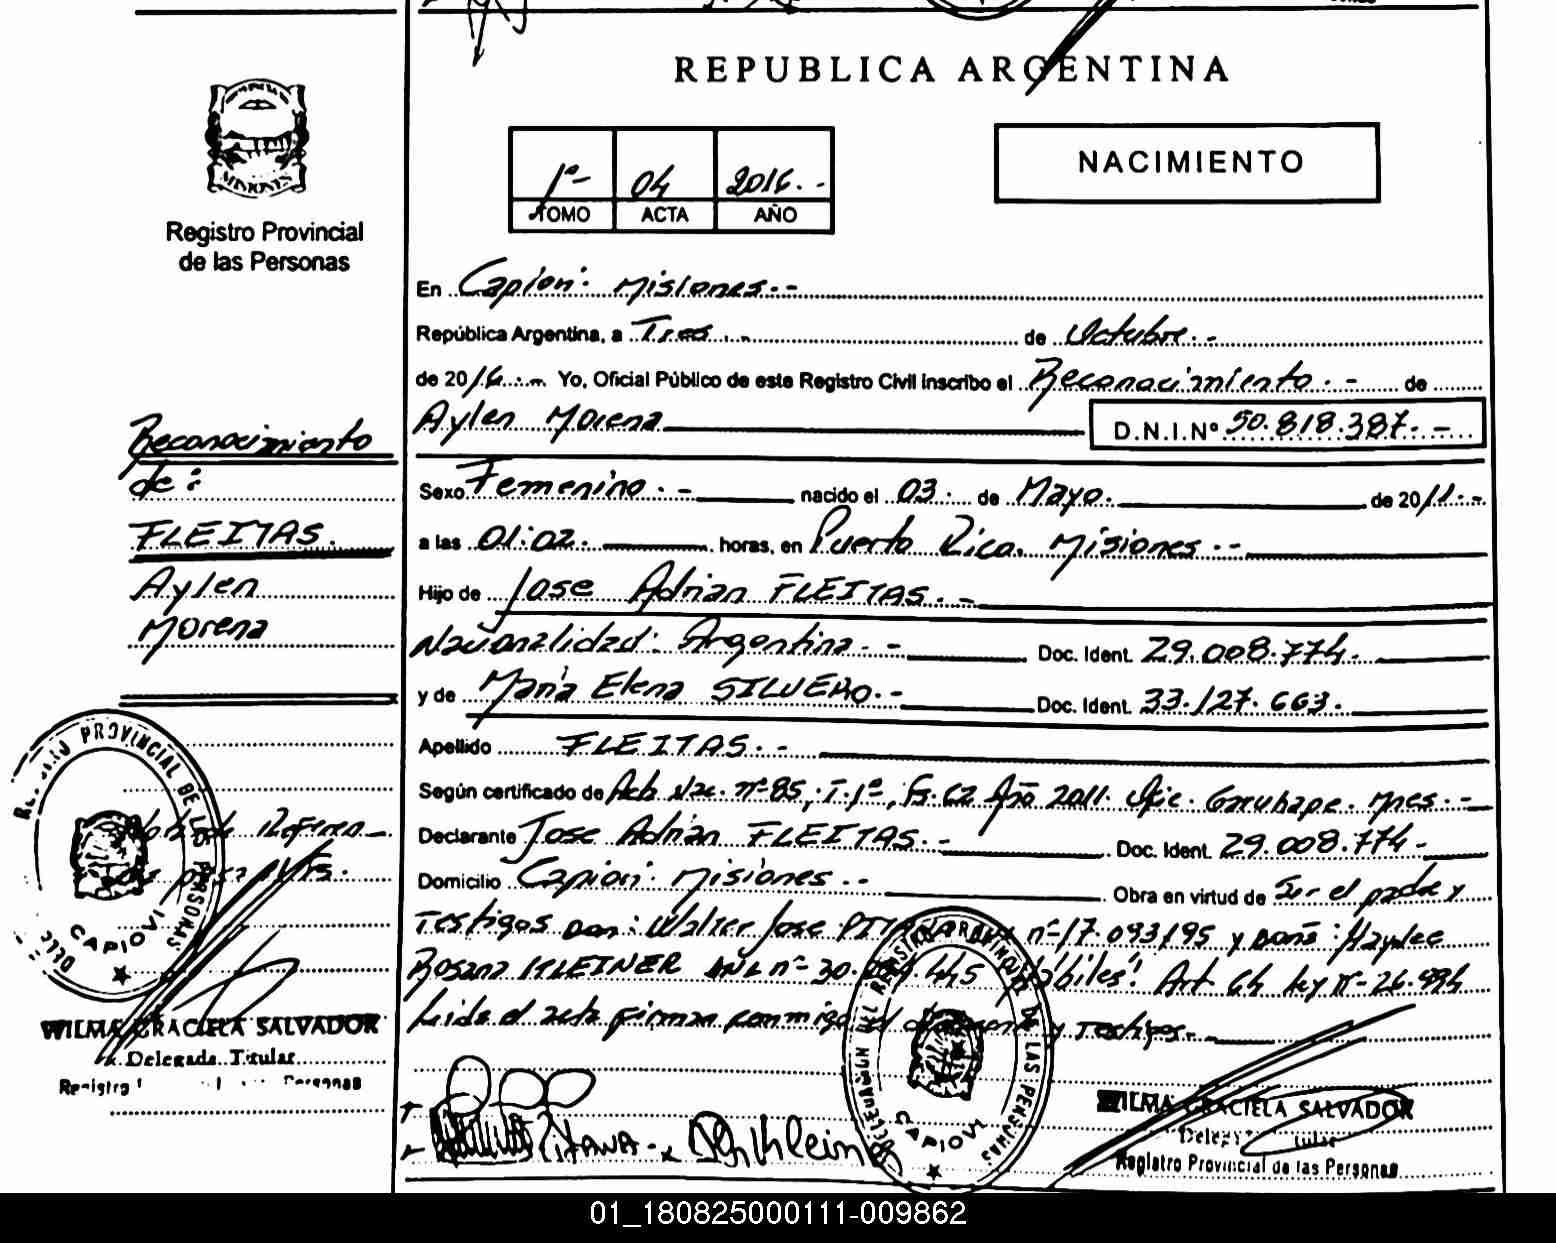 REPUBLICA ARGENTINA
MISIONES
Registro Provincial
de las Personas
1º- 04 2016.-
TOMO ACTA AÑO
NACIMIENTO
En Capioví: Misiones.-
República Argentina, a Tres.- de Octubre.-
de 2016.- Yo, Oficial Público de este Registro Civil inscribo el Reconocimiento.- de
Aylen Morena D.N.I.Nº 50.818.387.-
Sexo Femenino.- nacido el 03. de Mayo. de 2011.-
a las 01:02. horas, en Puerto Rico. Misiones.-
Hijo de Jose Adrian FLEITAS.-
Nacionalidad: Argentina.- Doc. Ident. 29.008.774.-
y de Maria Elena SILVERO.- Doc. Ident. 33.127.663.
Apellido FLEITAS.-
Según certificado de Acta Nac. nº 85, T.1º, Fº 62 Año 2011. Ofic. Garuhape. Mnes.-
Declarante Jose Adrian FLEITAS.- Doc. Ident. 29.008.774-
Domicilio Capioví: Misiones.- Obra en virtud de Ser el padre y
Testigos Don: Walter Jose nº 17.093195 y doña: Haydee
Rosana KLEINER DNI nº 30. 445 hábiles: Art 64 Ley Nº 26.994
Leida el acta firman conmigo el y Testigos.-
Reconocimiento
de:
FLEITAS.
Aylen
Morena
PROVINCIAL DE LAS PERSONAS
CAPIOVI
WILMA GRACIELA SALVADOR
Delegada Titular
Registro Personas
DELEGACION DEL REGISTRO PROVINCIAL DE LAS PERSONAS
CAPIOVI
WILMA GRACIELA SALVADOR
Titular
Registro Provincial de las Personas
01_180825000111-009862